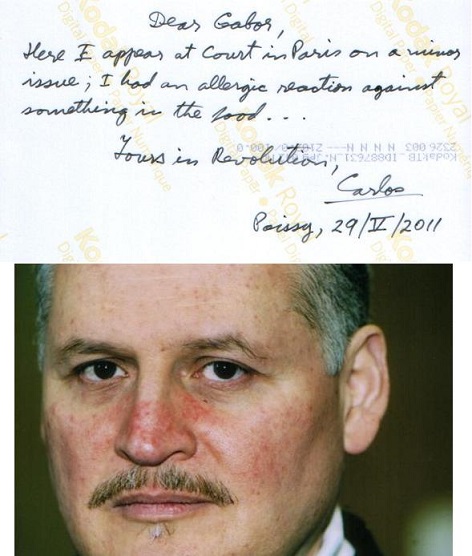 Dear Gabor,
Here I appear at Court in Paris on a minor
issue; I had an allergic reaction against
something in the food...
Yours in Revolution,
Carlos
Poissy, 29/IV/2011
Kodak Royal
Digital Paper
Papier Numérique